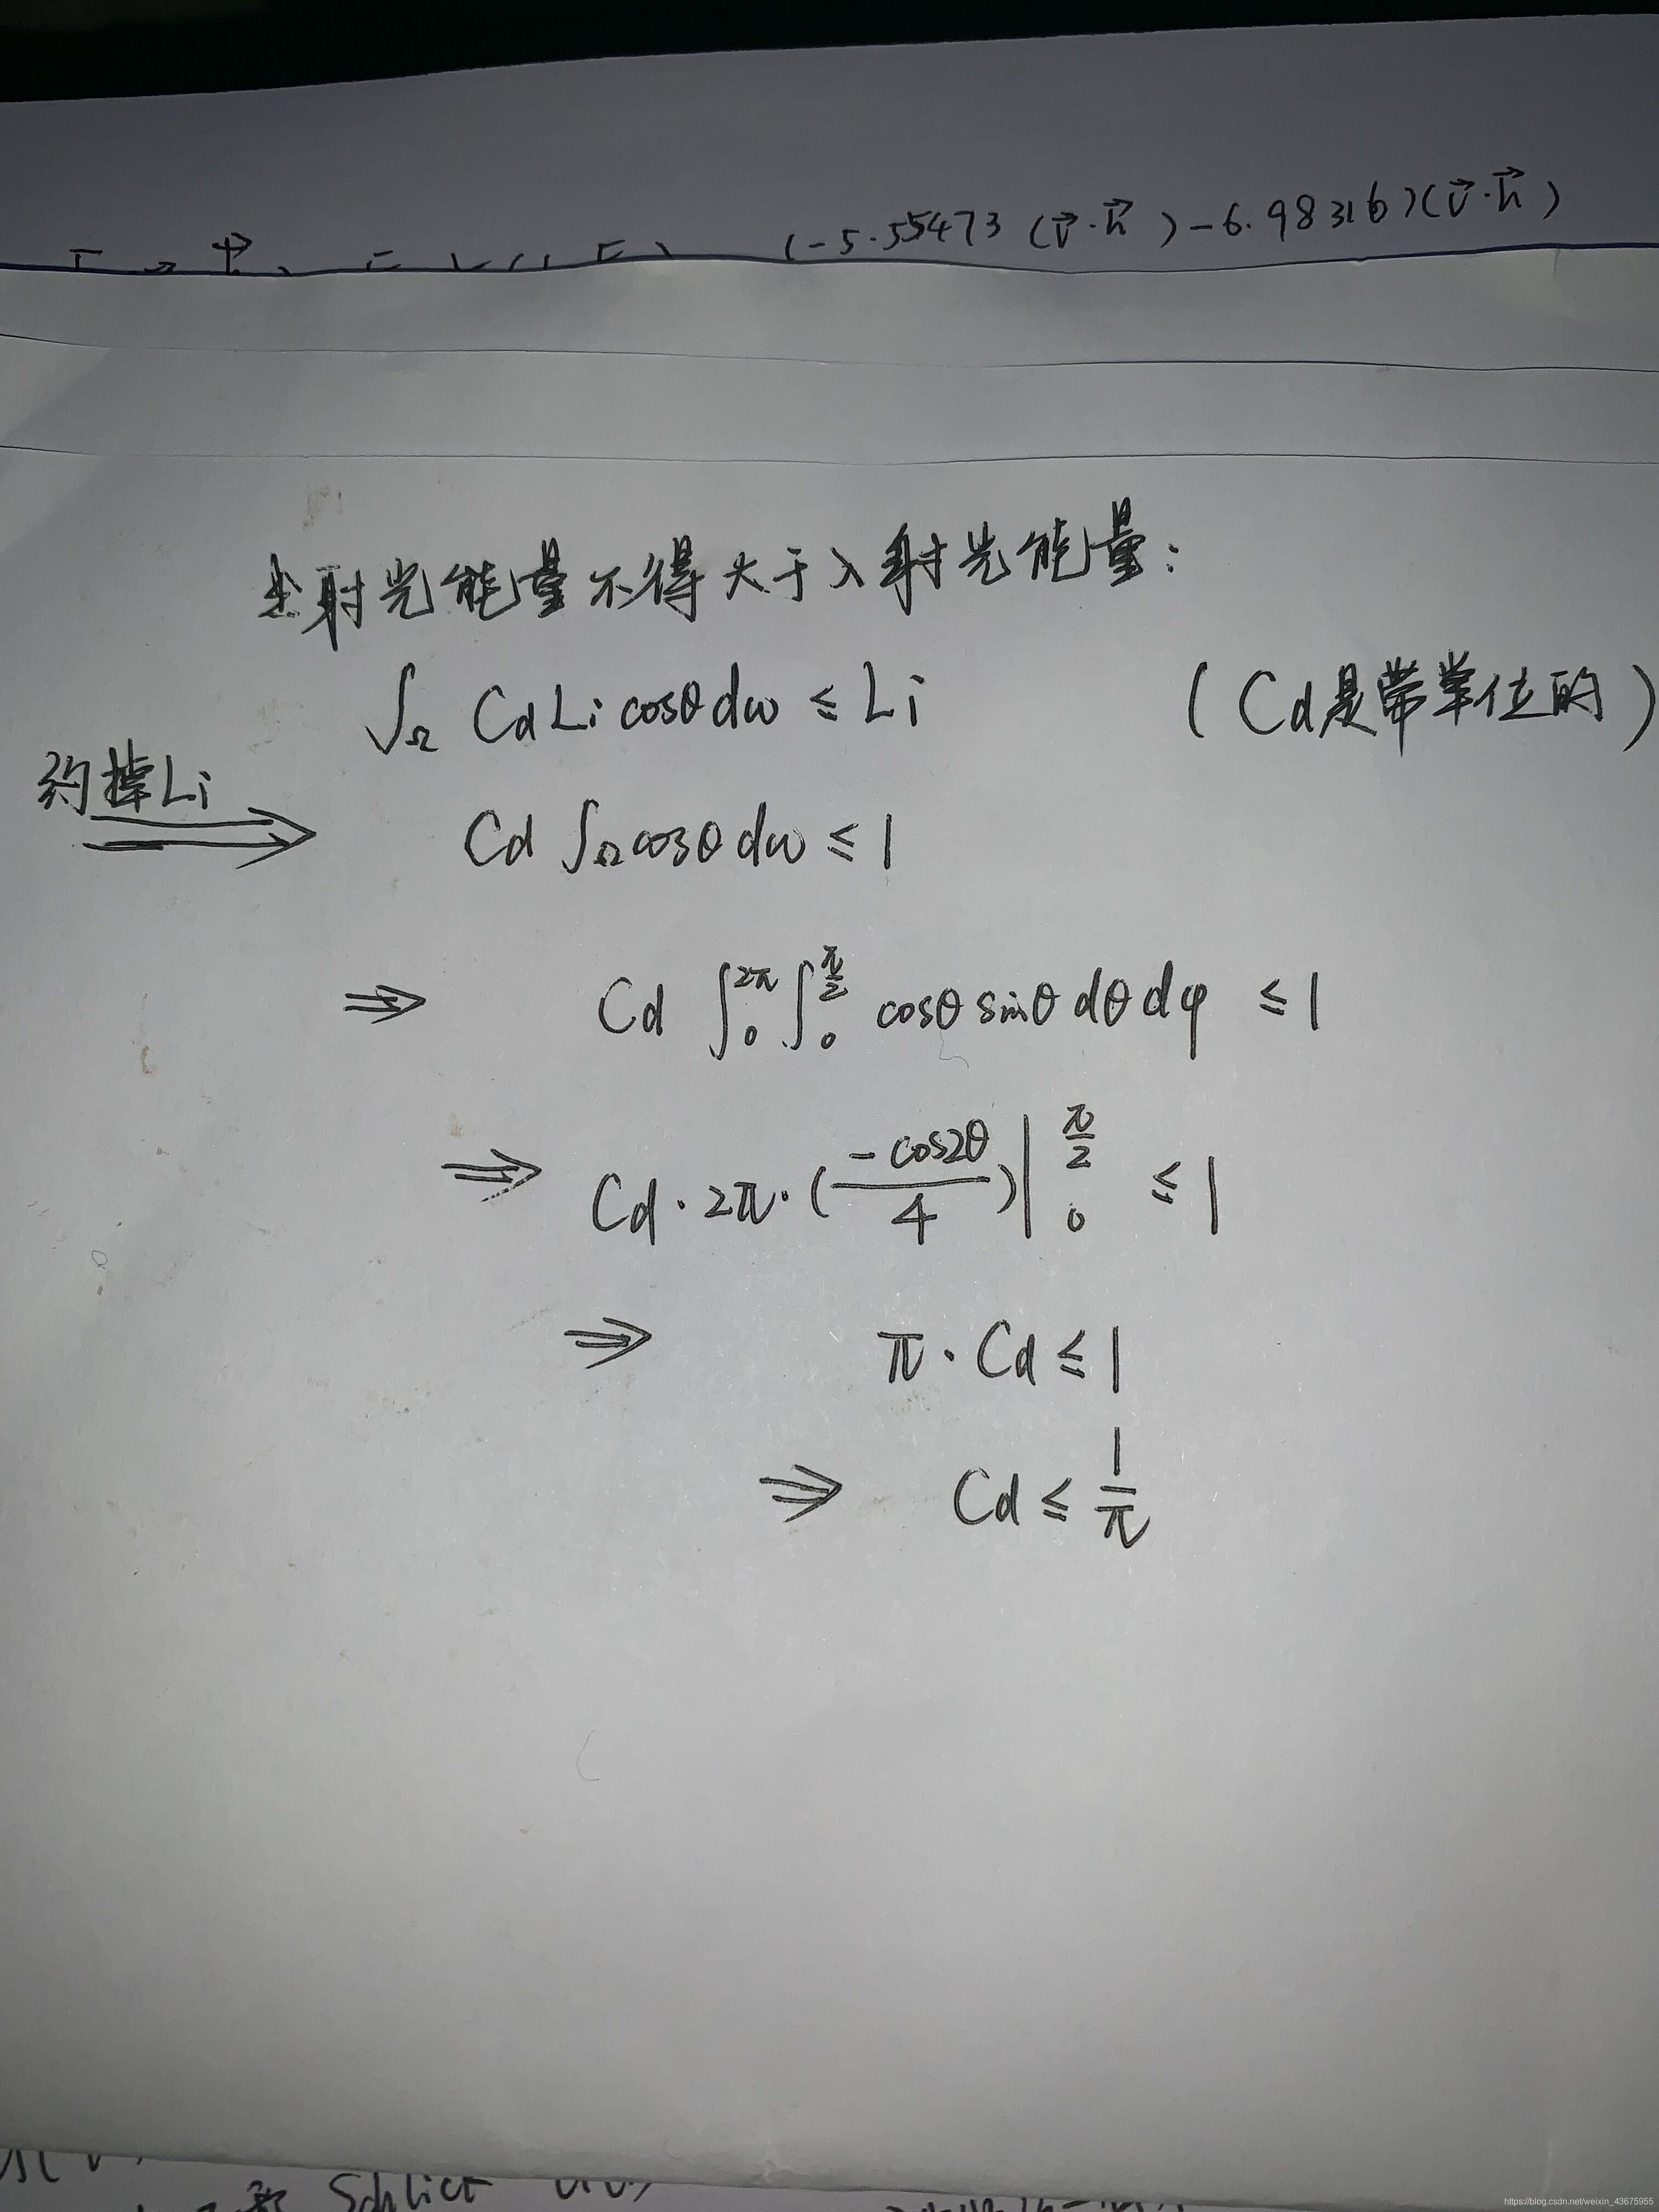 (-5.55473 (v⃗·h⃗) -6.98316)(v⃗·h⃗)
出射光能量不得大于入射光能量:
∫Ω Cd Li cosθ dω ≤ Li (Cd是带单位的)
约掉Li
⇒ Cd ∫Ω cosθ dω ≤ 1
⇒ Cd ∫₀^2π ∫₀^π/2 cosθ sinθ dθ dφ ≤ 1
⇒ Cd · 2π · (-cos2θ/4)|₀^π/2 ≤ 1
⇒ π · Cd ≤ 1
⇒ Cd ≤ 1/π
Schlick
https://blog.csdn.net/weixin_43675955